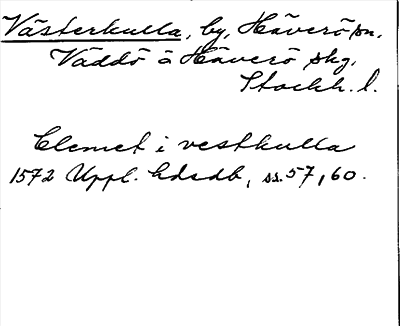 Västerkulla, by, Häverö sn,
Väddö o Häverö skg,
Stockh. l.
Clemet i vestkulla
1572 Uppl. hdsdb, ss. 57, 60.